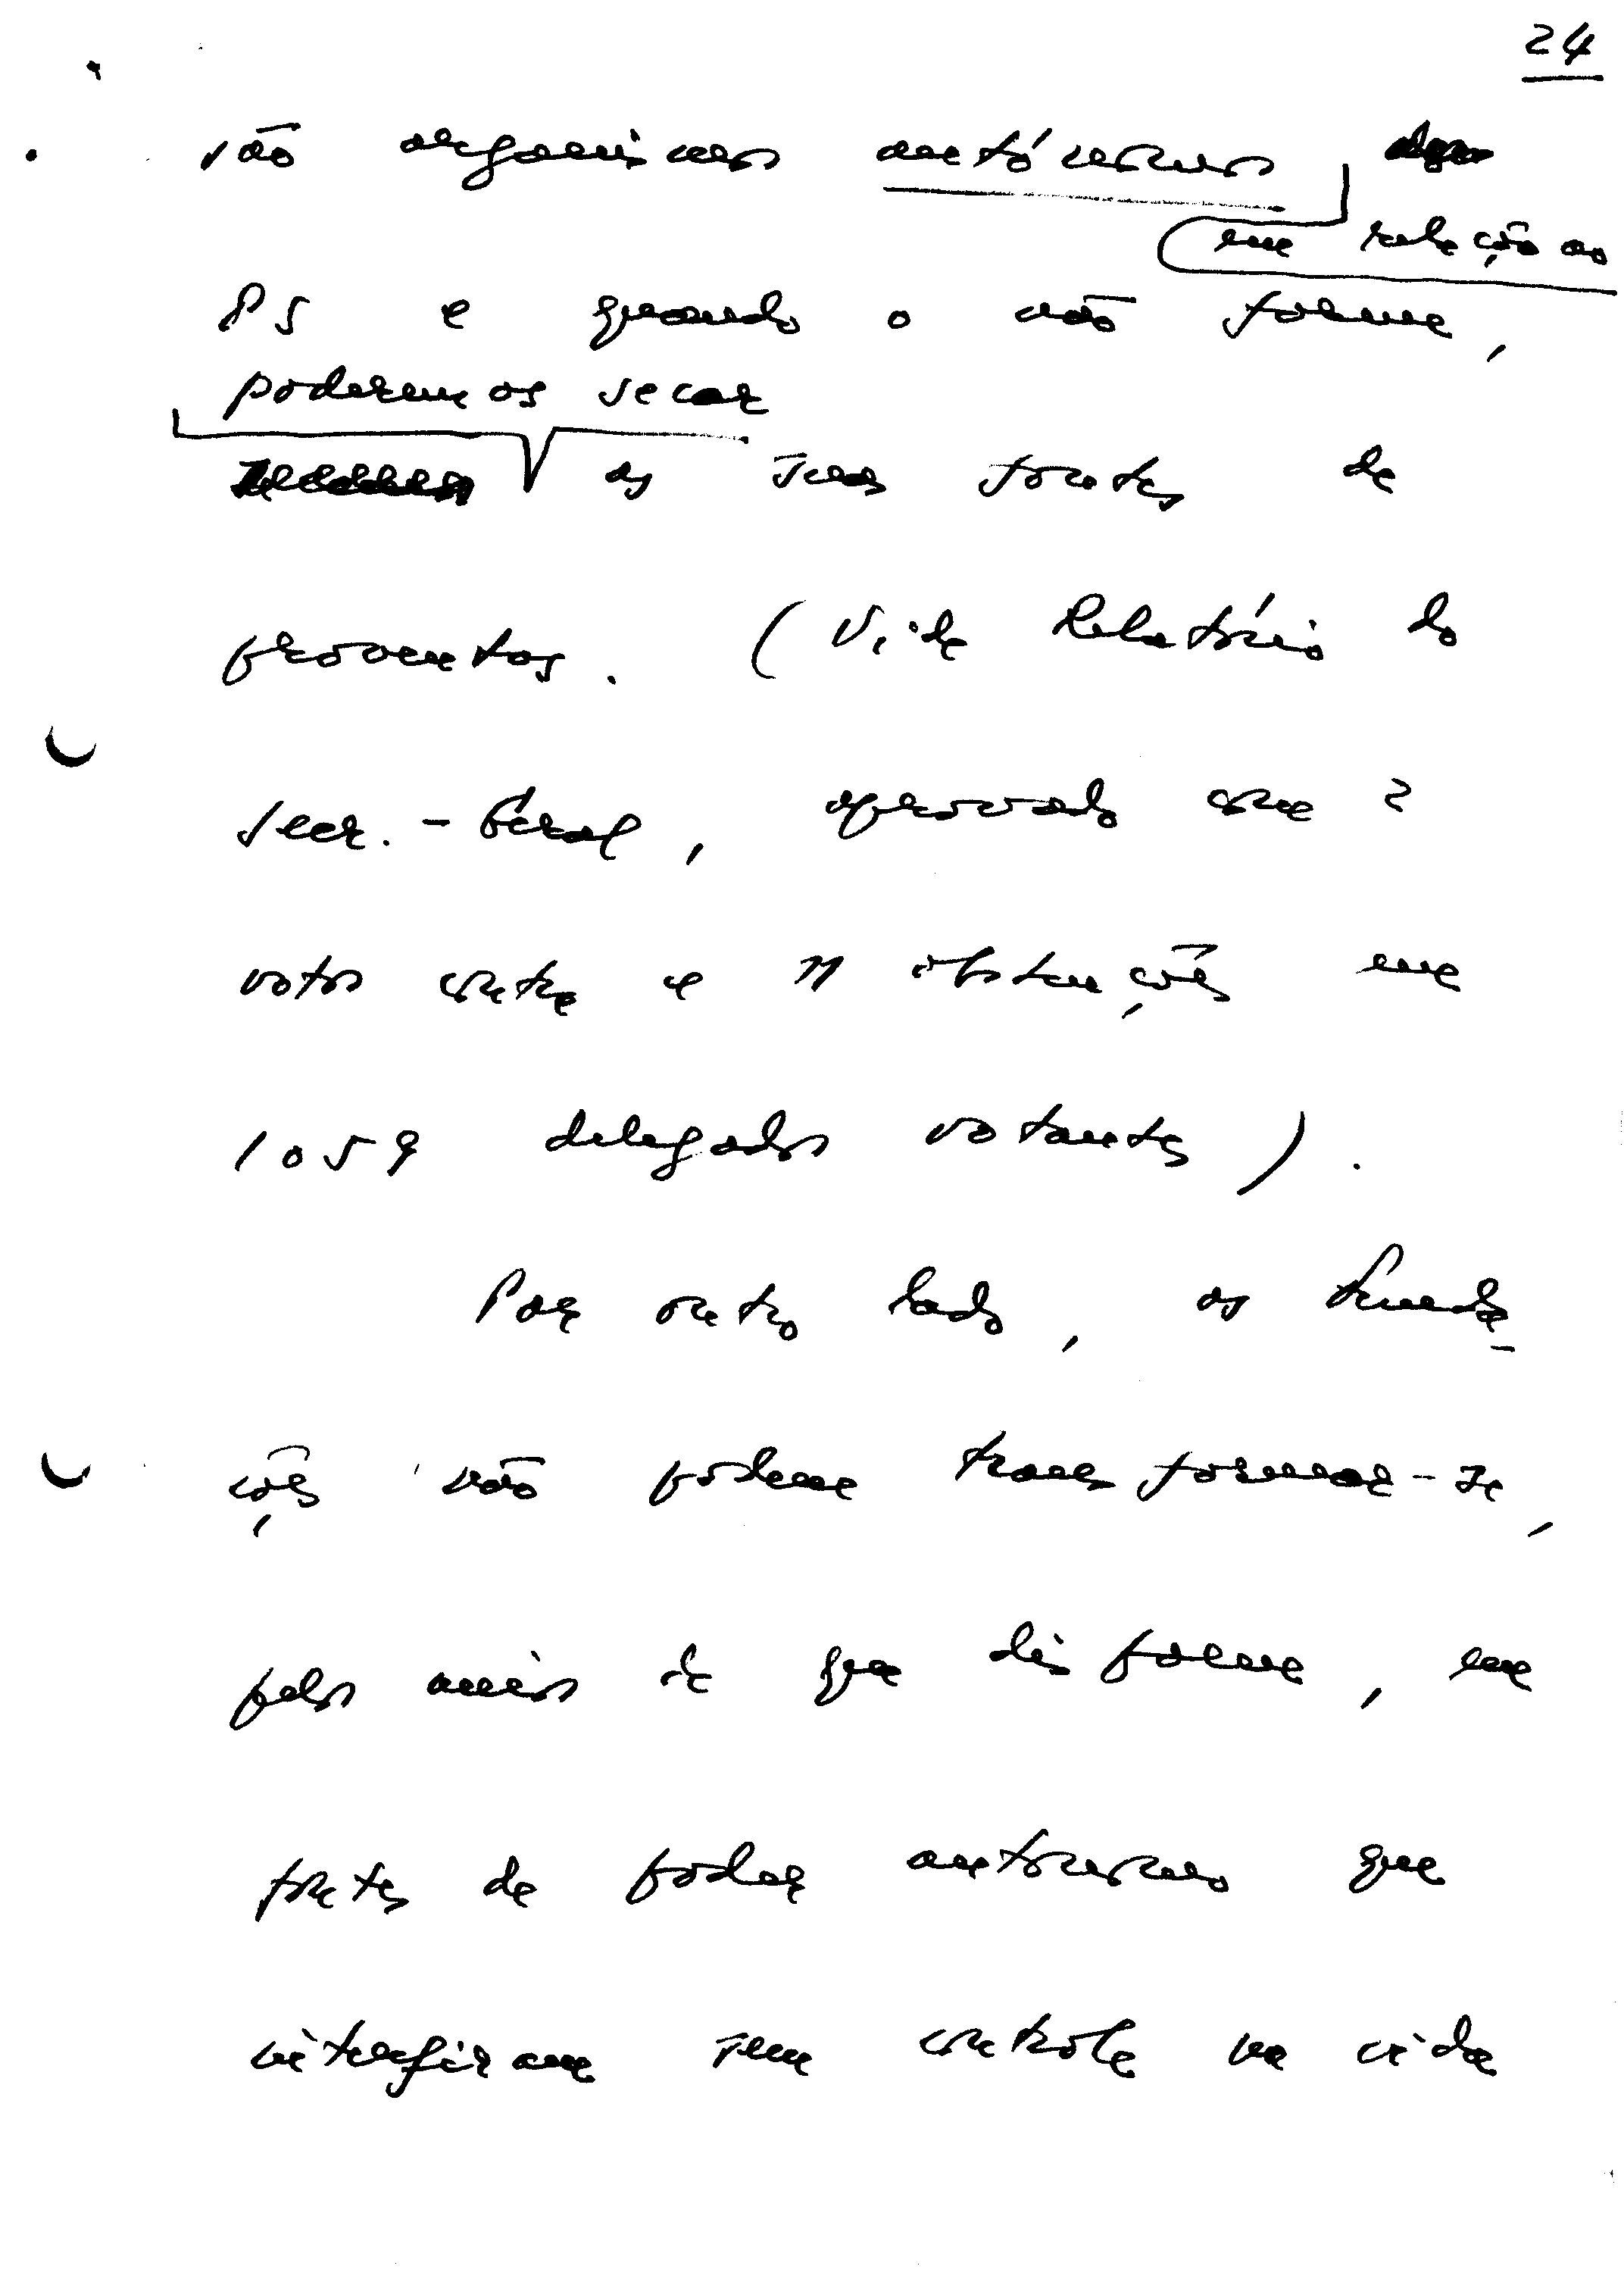 24
são organismos autónomos
em relação ao
PS e quando o não forem,
poderemos secar
as suas fontes de
proventos. (Vide Relatório do
Secr.-Geral, aprovado com 2
votos contra e 11 abstenções em
1059 delegados votantes).
Por outro lado, as Funda-
ções não podem transformar-se,
pelos meios de que dispõem, em
fontes de poder autónomo que
interfiram sem controle na vida